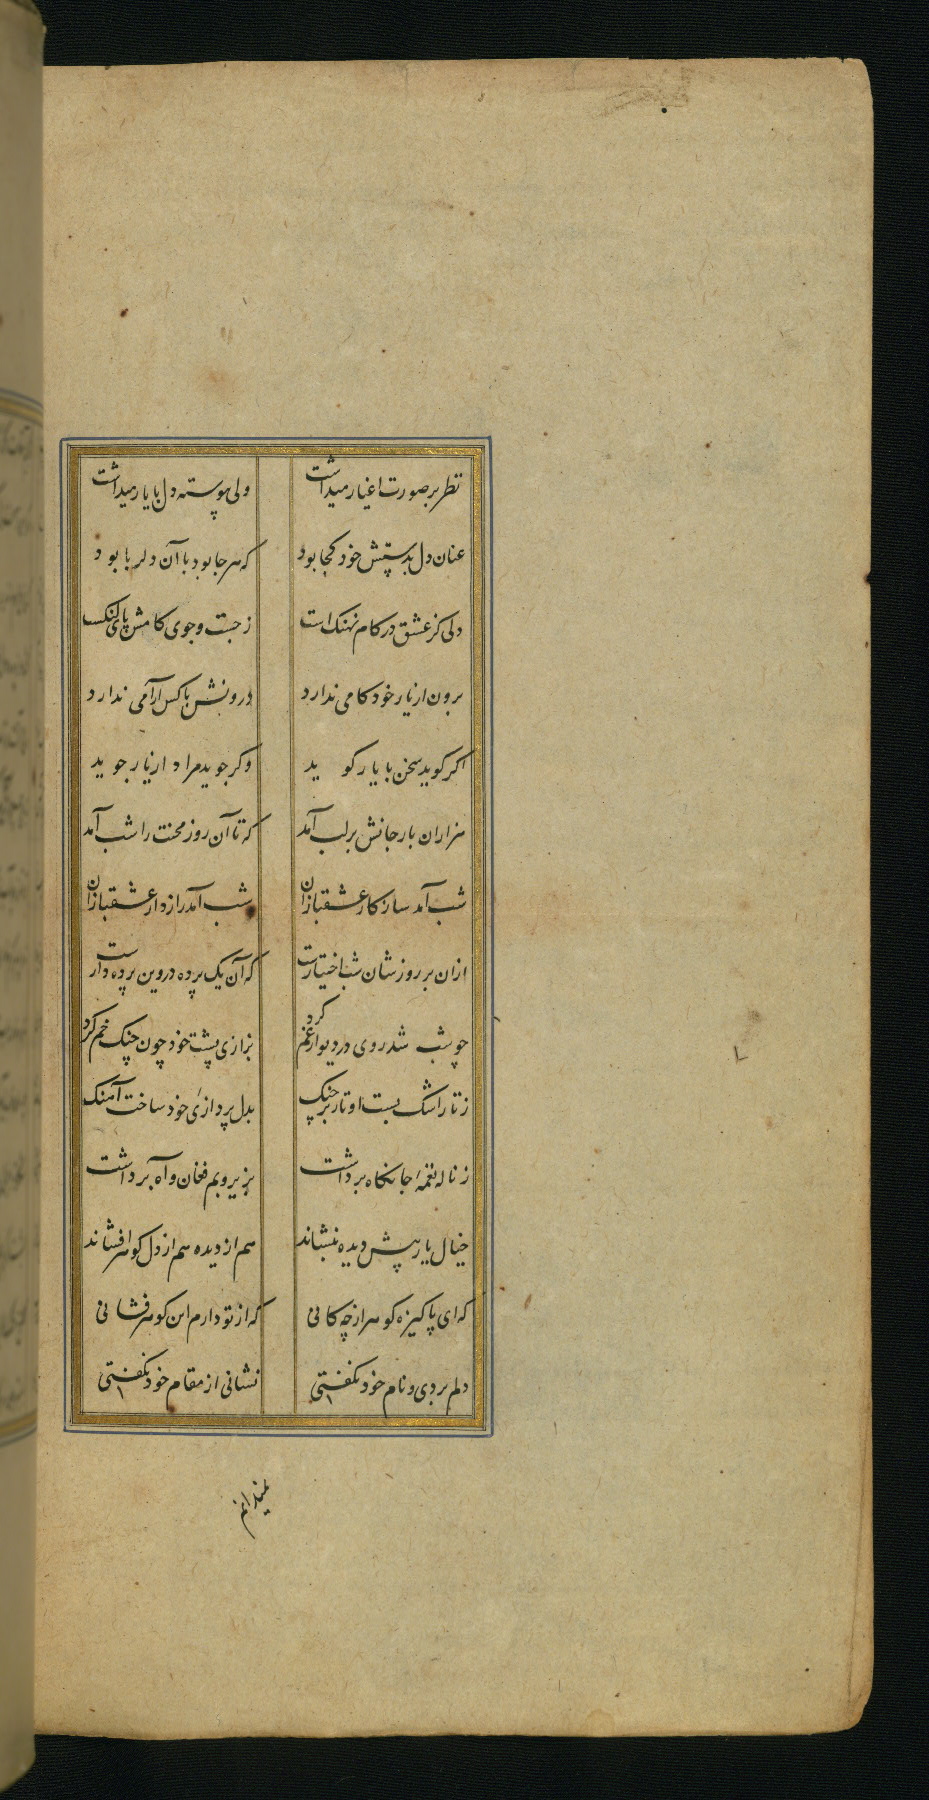 نظر بر صورت اغیار میداشت ولی پیوسته دل با یار میداشت
عنان دل بدستش خود کجا بود که هر جا بود با آن دلربا بود
دلی کز عشق در کام نهنک است ز جست و جوی کامش پای لنکست
برون از یار خود کامی ندارد درونش با کس آرامی ندارد
اکر کوید سخن با یار کوید وکر جوید مراد از یار جوید
هزاران بار جانش بر لب آمد که تا آن روز محنت را شب آمد
شب آمد ساز کار عشقبازان شب آمد رازدار عشقبازان
ازان بر روز شان شب اختیارست که آن یک پرده در وین پرده دارست
چو شب شد روی در دیوار غم کرد بزاری پشت خود چون چنک خم کرد
ز تار اشک بست اوتار بر چنک بدل پردازئ خود ساخت آهنک
ز ناله نغمهٔ جانکاه برداشت بزیر و بم فغان و آه برداشت
خیال یار پیش دیده بنشاند هم از دیده هم از دل کوهر افشاند
که ای پاکیزه کوهر از چه کانی که از تو دارم این کوهر فشانی
دلم بردی و نام خود نکفتی نشانی از مقام خود نکفتی
نمیدانم